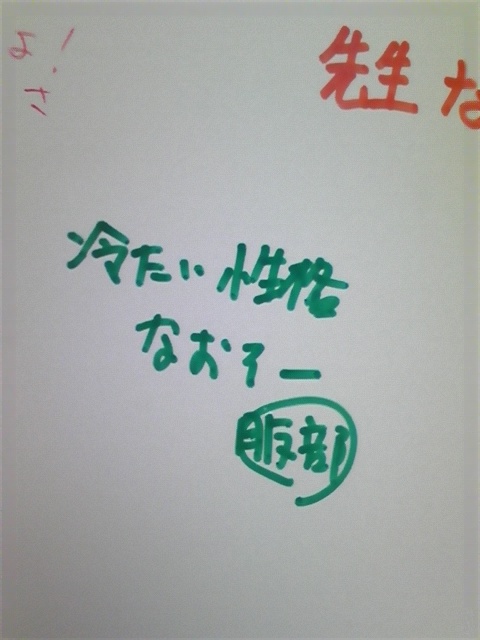 先生な
よ!
さ
冷たい性格
なおそー
服部